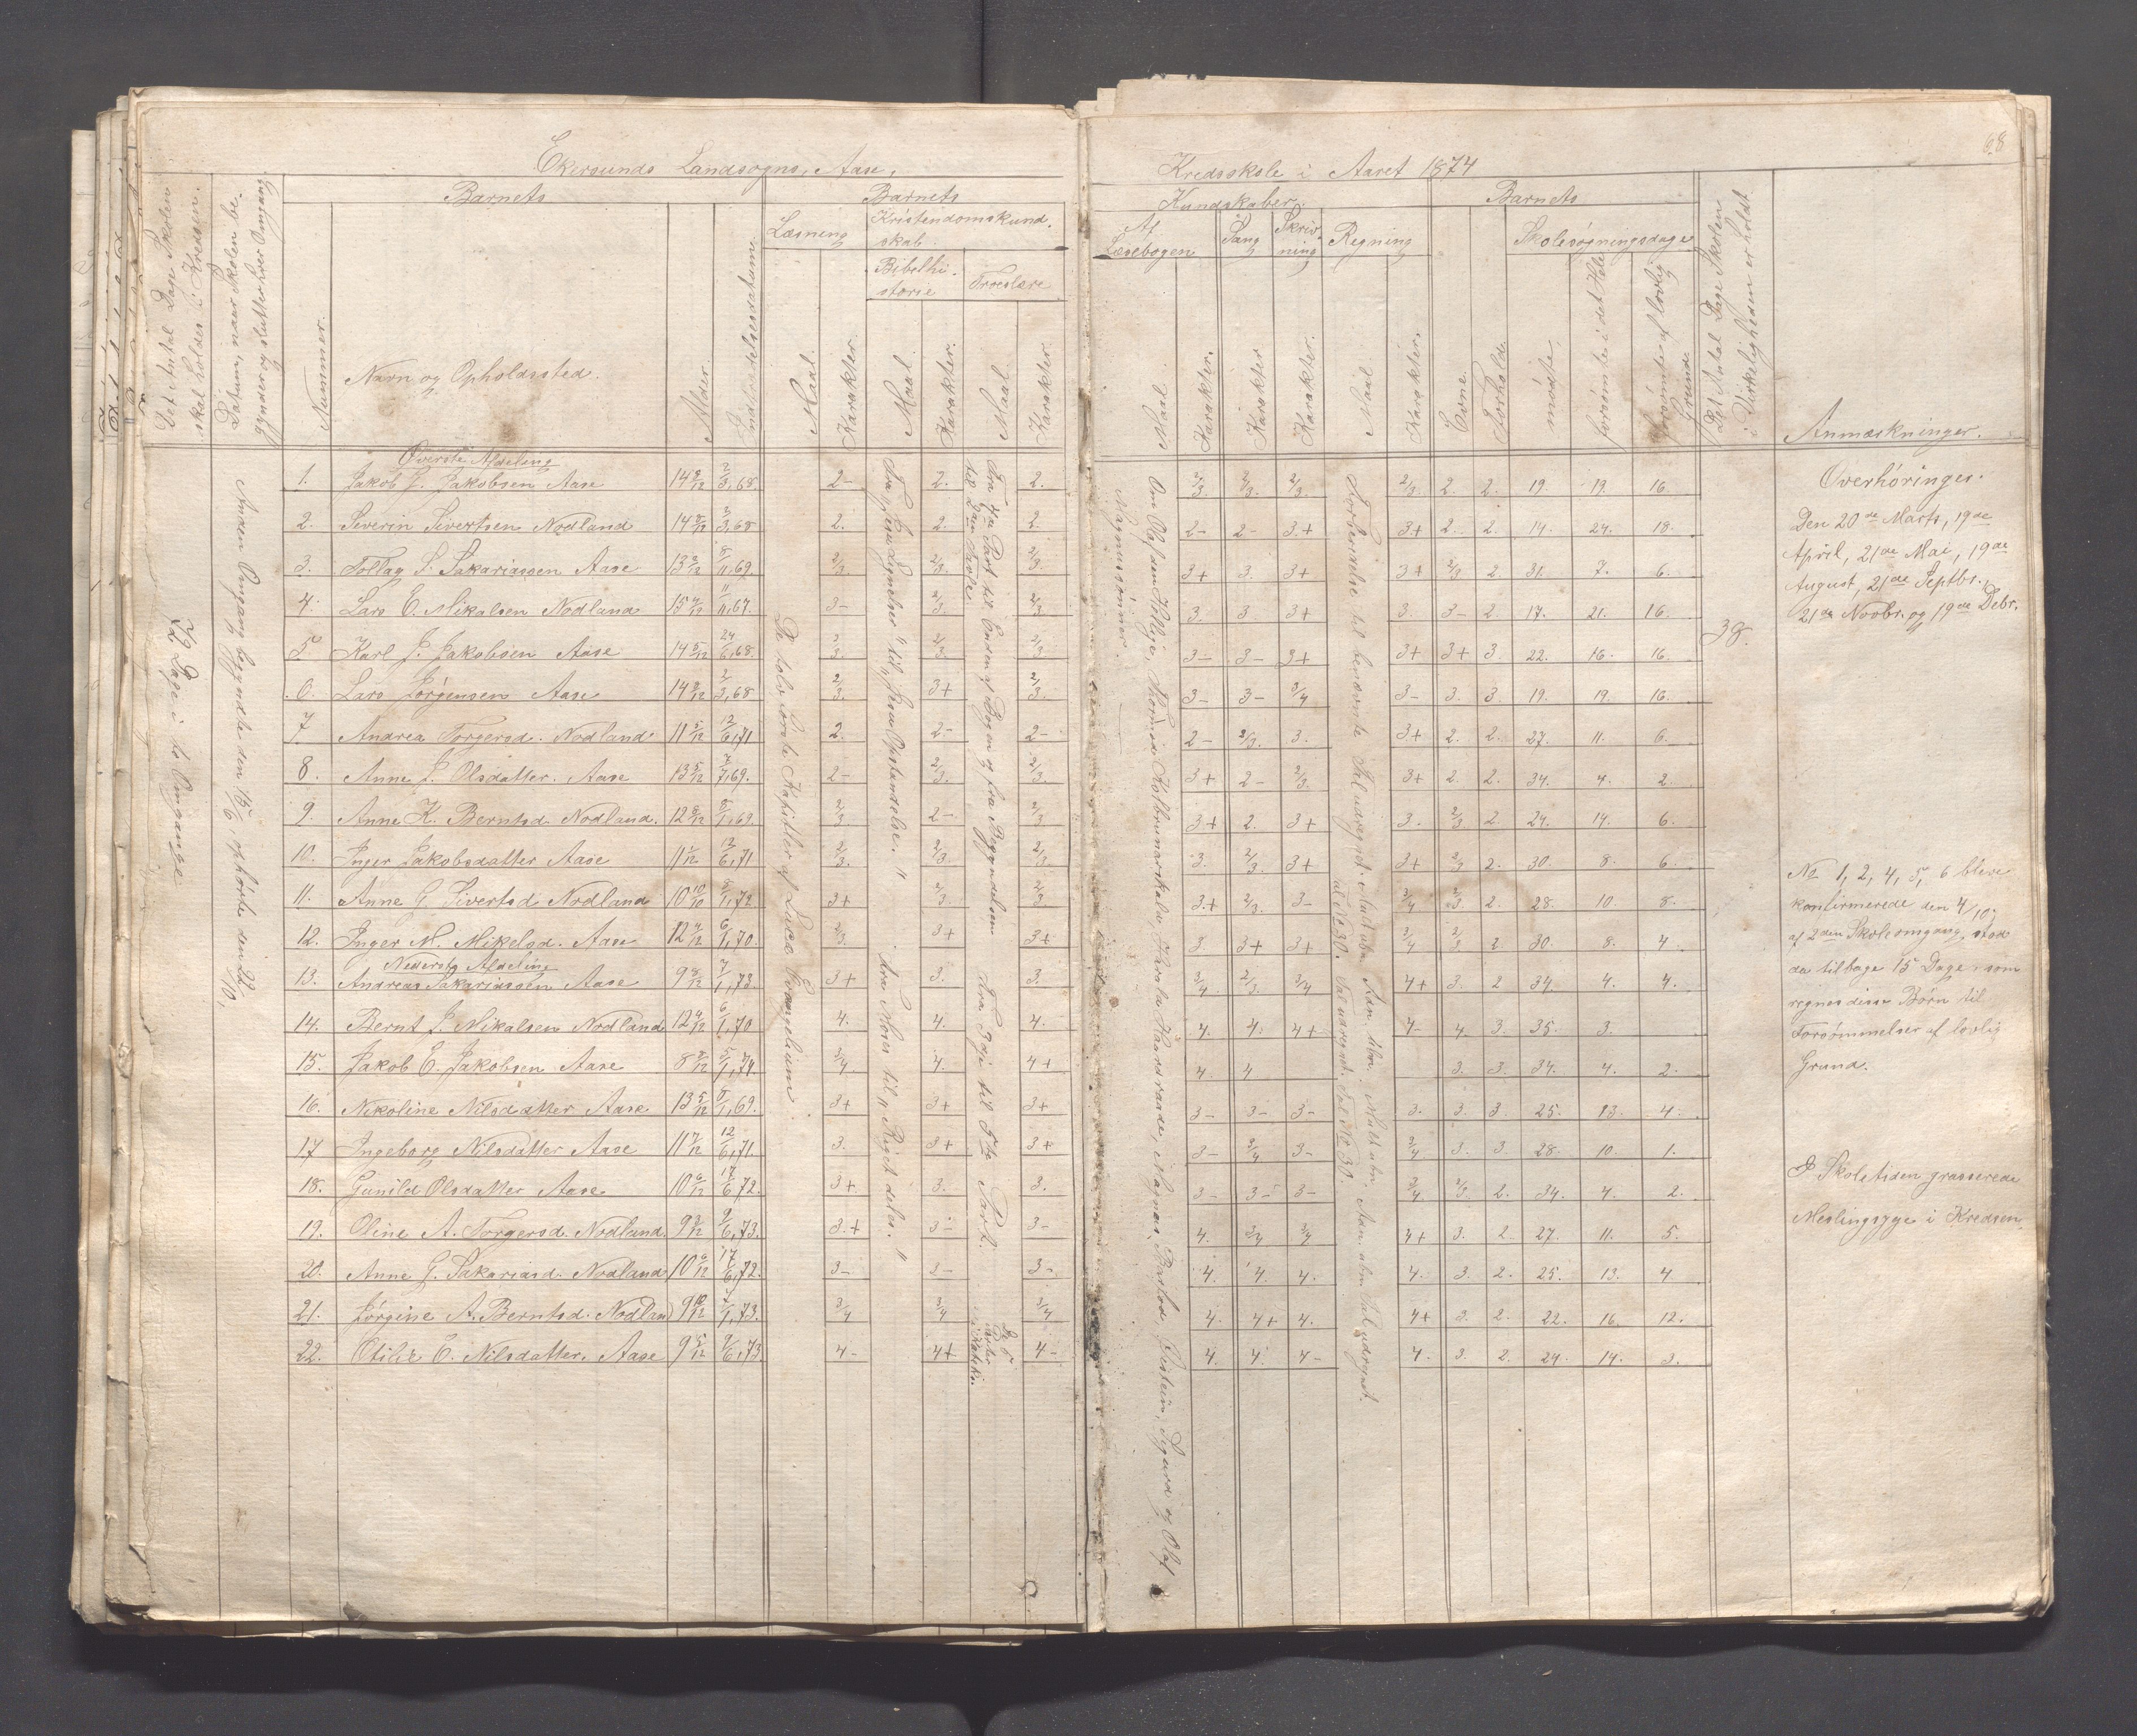 Ekersunds Landsogns, Aase,
Kredsskole i Aaret 1874
68
Det Antal Dage Skolen skal holdes i Kredsen.
Datum, naar Skolen begynder og slutter hver Omgang.
Barnets
Nummer.
Navn og Opholdssted.
Alder.
Indtrædelsesdatum.
Barnets
Læsning
Maal.
Karakter.
Kristendomskundskab.
Bibelhistorie
Maal.
Karakter.
Troeslære
Maal.
Karakter.
Kundskaber:
Af Læsebogen
Maal
Karakter.
Sang
Karakter
Skrivning
Karakter.
Regning
Maal.
Karakter.
Barnets
Evne.
Forhold.
Skolesøgningsdage
mødte.
forsømte i det Hele
forsømte af lovlig Grund.
Det Antal Dage Skolen i Virkeligheden er holdt.
Anmærkninger.
72 Dage i to Omgange
Anden Omgang begyndte den 15/6, ophørte den 22/10.
De tolv første Kapitler af Lucæ Evangelium.
Fra "Jesu Lignelser" til "Jesu Opstandelse."
Fra Moses til "Riget deles."
Fra 4de Part til Enden af Bogen og fra Begyndelsen til 2den Tavle
Fra 3die til 5te Part.
De 5 Parter i Katekis.
Om Olaf den Hellige, Thormod Kolbrunarskald, Harald Haardraade, Magnus Barfod, Eistein, Sigurd og Olaf Magnussønner.
Forberedelse til benævnte Tal udregnet.
Tal udregnet. Tal No 30.
Øverste Afdeling
1. Jakob J. Jakobsen Aase 14 9/12 2/3,68. 2- 2. 2. 2/3. 2/3. 2/3. 2/3. 2. 2. 19. 19. 16.
2. Severin Sivertsen Nodland 14 9/12 2/3,68 2. 2. 2. 2- 2- 3+ 3+ 2. 2. 14. 24. 18.
3. Tollag S. Sakariassen Aase 13 2/12 8/11,69. 2/3. 2/3. 2/3. 3+ 3. 3+ 3+ 2/3 2. 31. 7. 6.
4. Lars E. Mikalsen Nodland 15 4/12 11/11,67. 3- 2/3. 2/3. 3. 3. 3+ 3. 3- 2. 17. 21. 16.
5 Karl J. Jakobsen Aase 14 5/12 24/6,68. 2/3. 2/3. 2/3. 3- 3- 3+ 3+ 3+ 3. 22. 16. 16.
6. Lars Jørgensen Aase 14 9/12 2/3,68 2/3. 3+ 2/3. 3- 3- 3/4 3- 3. 3. 19. 19. 16.
7. Andrea Torgersd. Nodland 11 5/12 12/6,71 2. 2- 2- 2- 2/3. 3. 3+ 2. 2. 27. 11. 6.
8. Anne J. Olsdatter. Aase 13 5/12 7/7,69. 2- 2/3. 2/3. 3+ 2- 2/3. 3+ 2. 2. 34. 4. 2.
9. Anne K. Berntsd Nodland. 12 8/12 8/1,69. 2/3. 2- 2/3. 3+ 2. 3+ 3. 2/3 2. 24. 14. 6.
10. Inger Jakobsdatter Aase 11 1/12 12/6,71 2/3. 2/3. 2/3. 3. 2/3. 3+ 3+ 2/3 2. 30. 8. 6.
11. Anne G. Sivertsd Nodland 10 10/10 8/1,72 3+ 2/3. 2/3. 3+ 2/3. 3- 3/4 2/3 2. 28. 10. 8.
12. Inger M. Mikelsd. Aase 12 4/12 6/1,70. 2/3. 3+ 3+ 3. 3+ 3+ 3/4 2/3 2. 30. 8. 4.
Nederste Afdeling
13. Andreas Sakariassen Aase 9 8/12 7/1,73. 3+ 3. 3. 3/4. 2/3. 3/4 4+ 3. 2 34. 4. 4.
14. Bernt J. Mikalsen Nodland 12 4/12 6/1,70 4. 4. 4. 4. 4. 4+ 4- 4. 3. 35. 3.
15. Jakob E. Jakobsen Aase 8 8/12 5/1,74. 3/4. 4. 4+ 4. 4 3. 3. 34. 4. 2.
16. Nikoline Nilsdatter Aase 13 5/12 8/1,69. 3+ 3+ 3+ 3- 3- 3- 3. 3. 3. 25. 13. 4.
17 Ingeborg Nilsdatter Aase 11 7/12 12/6,71. 3. 3+ 3+ 3- 3/4 3- 3/4 3. 3. 28. 10. 1.
18. Gunild Olsdatter Aase. 10 6/12 17/6,72. 3+ 3. 3. 3- 3- 3- 3/4 2/3. 2. 34. 4. 2.
19. Oline A. Torgersd. Nodland. 9 3/12 9/6,73. 3+ 3- 3- 4. 3/4 3/4 4+ 3. 2. 27. 11. 5.
20. Anne G. Sakariasd. Nodland 10 6/12 17/6,72. 3- 3- 3- 4. 4. 4. 4. 3. 2. 25. 13. 4
21. Jørgine A. Berntsd. Nodland 9 10/12 7/1,73. 3/4 3/4 3/4 4. 4+ 4. 4+ 3. 2. 22. 16. 12.
22. Otilie E. Nilsdatter. Aase 9 5/12 9/6,73. 4- 4+ 4- 4. 4. 4- 4. 3. 2. 24. 14. 3.
38.
Overhøringer.
Den 20de Marts, 19de
April, 21de Mai, 19de
August, 21de Septbr.,
21de Novbr. og 19de Debr.
No 1, 2, 4, 5, 6 bleve
konfirmerede den 4/10;
af 2den Skoleomgang stod
da tilbage 15 Dage, som
regnes disse Børn til
Forsømmelser af lovlig
Grund.
I Skoletiden grasserede
Meslingsyge i Kredsen.